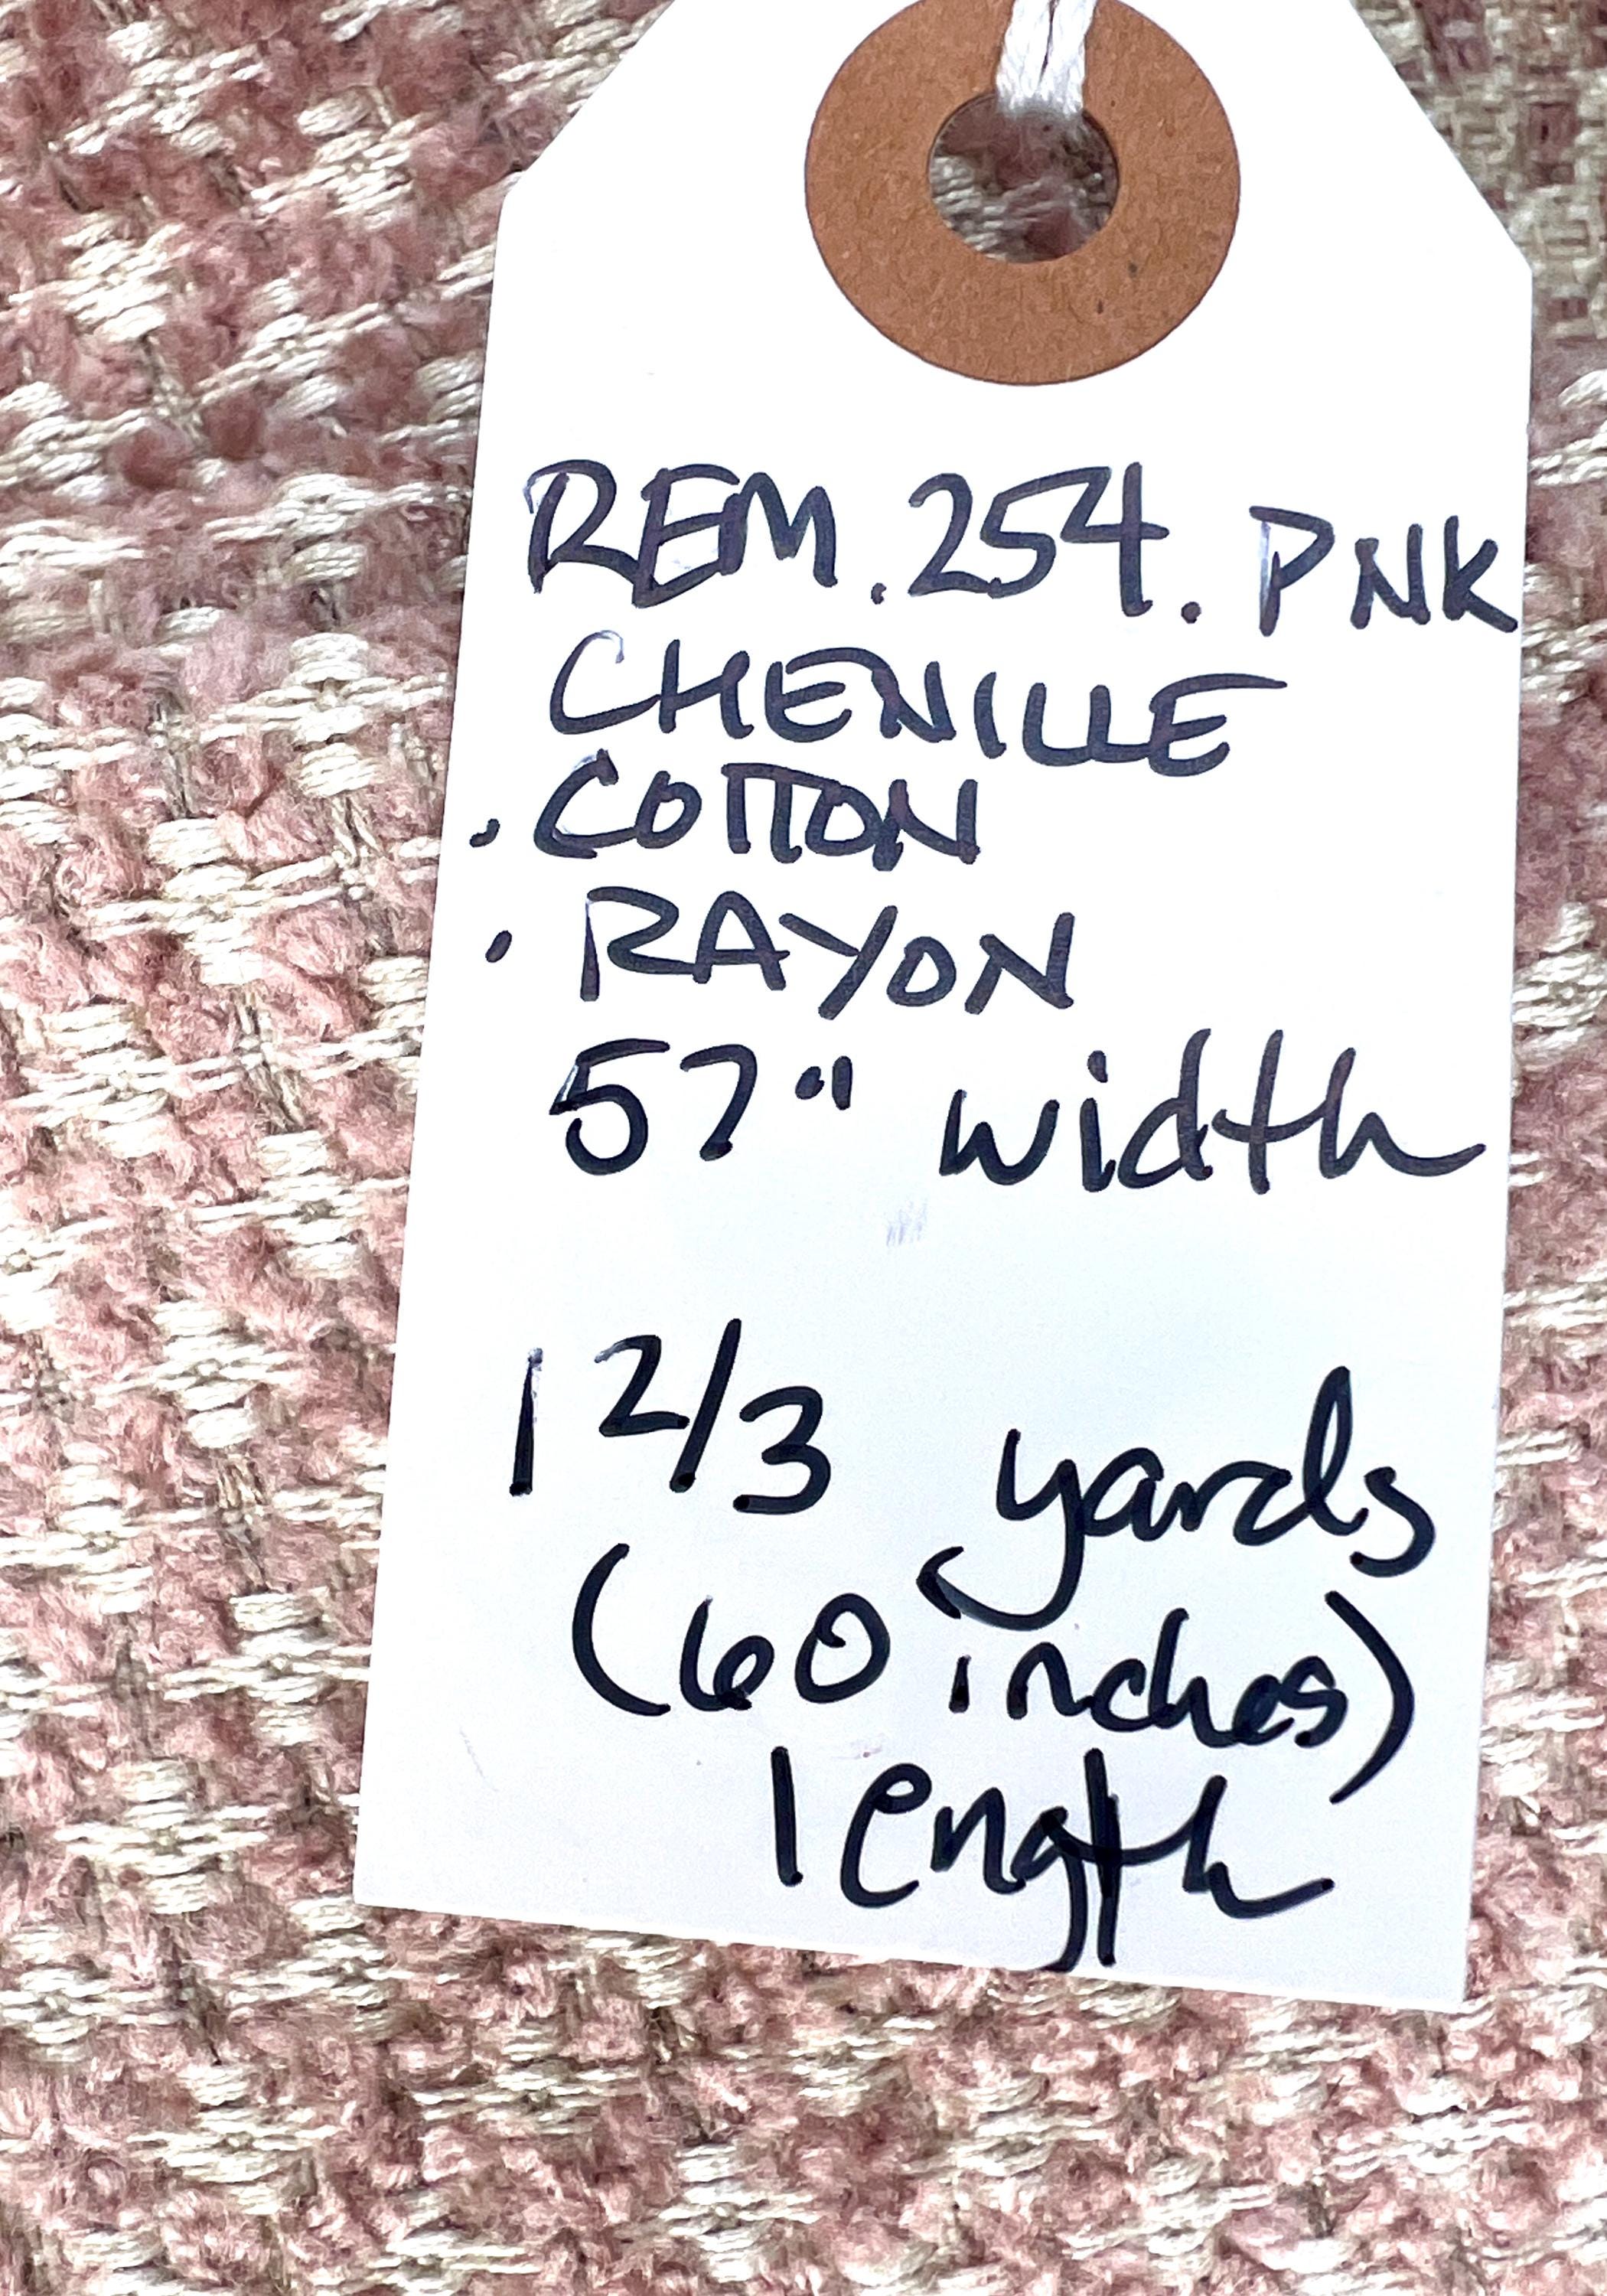 REM.254.PNK
CHENILLE
. COTTON
. RAYON
57" width
1 2/3 yards
(60 inches)
length